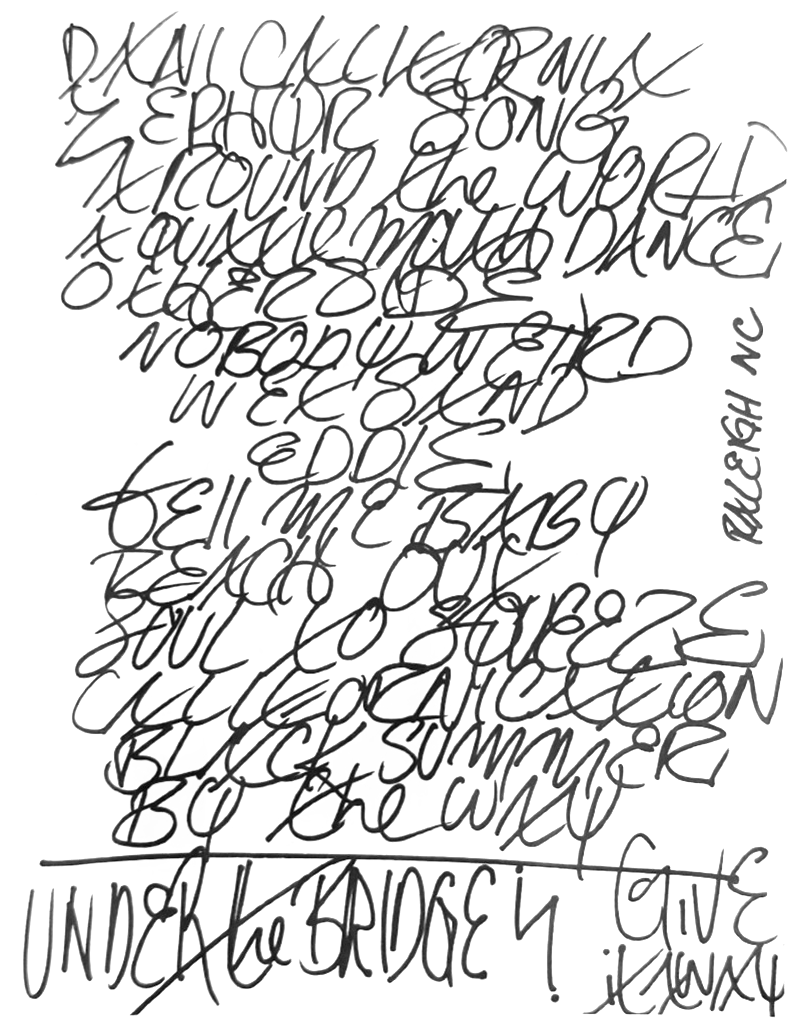 DANI CALIFORNIA
ZEPHYR SONG
AROUND the WORLD
AQUATIC MOUTH DANCE
OTHERSIDE
NOBODY WEIRD
WET SAND
EDDIE
tELL ME BABY
REACH OUT
SOUL TO SQUEEZE
CALIFORNICATION
BLACK SUMMER
BY the WAY
UNDER the BRIDGE
GIVE
it AWAY
RALEIGH NC